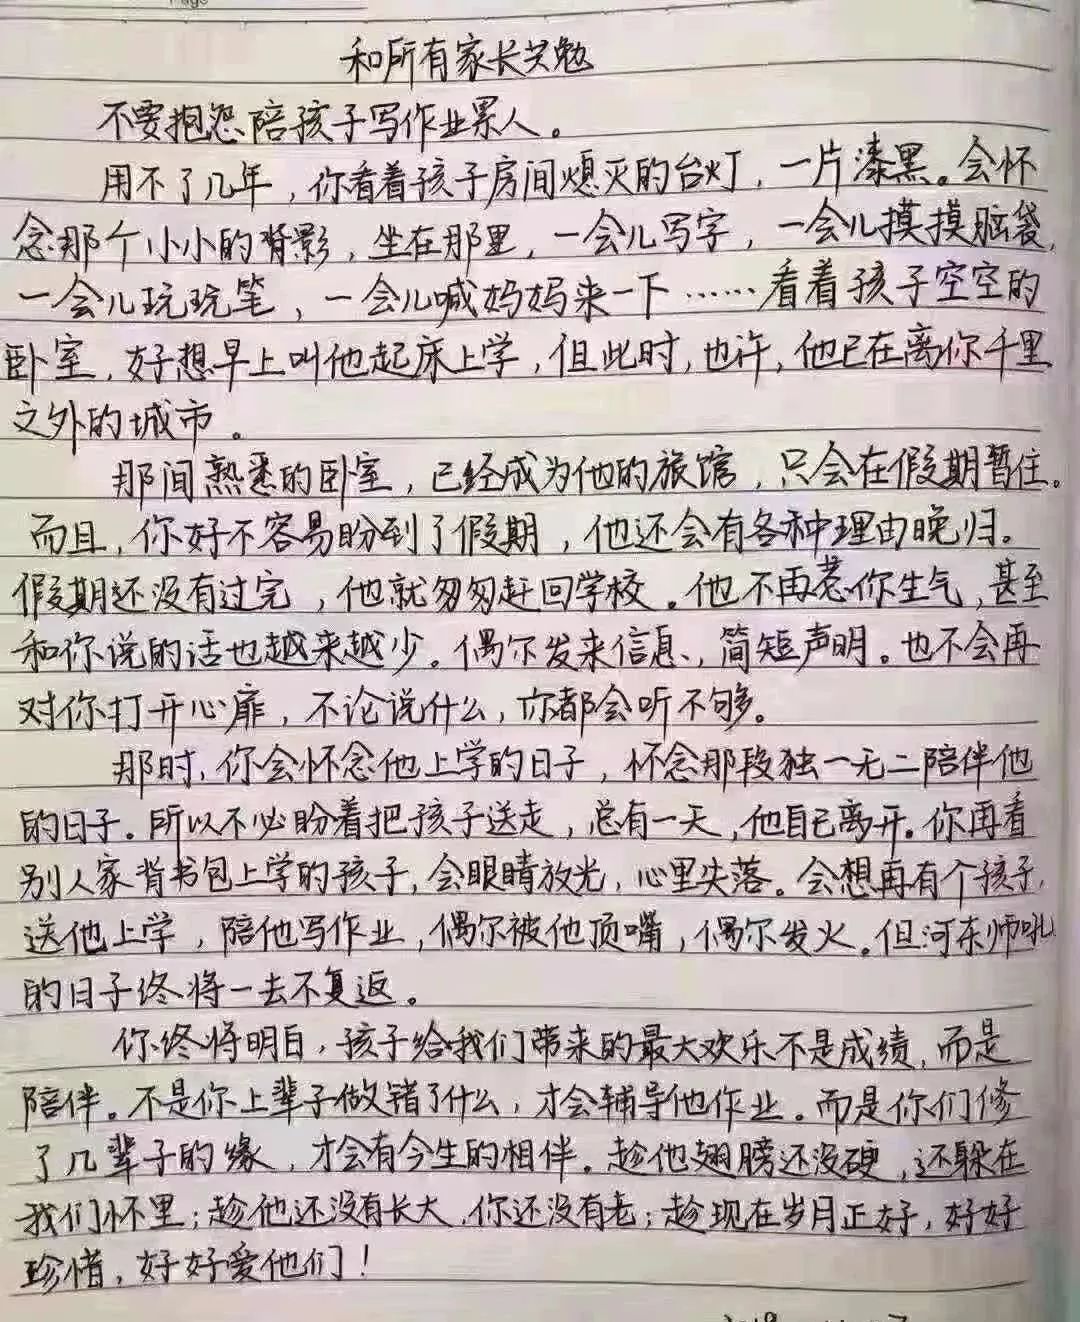 和所有家长共勉
不要抱怨陪孩子写作业累人。
用不了几年，你看着孩子房间熄灭的台灯，一片漆黑。会怀
念那个小小的背影，坐在那里，一会儿写字，一会儿摸摸脑袋，
一会儿玩玩笔，一会儿喊妈妈来一下……看着孩子空空的
卧室，好想早上叫他起床上学，但此时，也许，他已在离你千里
之外的城市。
那间熟悉的卧室，已经成为他的旅馆，只会在假期暂住。
而且，你好不容易盼到了假期，他还会有各种理由晚归。
假期还没有过完，他就匆匆赶回学校。他不再惹你生气，甚至
和你说的话也越来越少。偶尔发来信息，简短声明。也不会再
对你打开心扉，不论说什么，你都会听不够。
那时，你会怀念他上学的日子，怀念那段独一无二陪伴他
的日子。所以不必盼着把孩子送走，总有一天，他自己离开。你再看
别人家背书包上学的孩子，会眼睛放光，心里失落。会想再有个孩子，
送他上学，陪他写作业，偶尔被他顶嘴，偶尔发火。但河东师吼
的日子终将一去不复返。
你终将明白，孩子给我们带来的最大欢乐不是成绩，而是
陪伴。不是你上辈子做错了什么，才会辅导他作业。而是你们修
了几辈子的缘，才会有今生的相伴。趁他翅膀还没硬，还躲在
我们怀里；趁他还没有长大，你还没有老；趁现在岁月正好，好好
珍惜，好好爱他们！